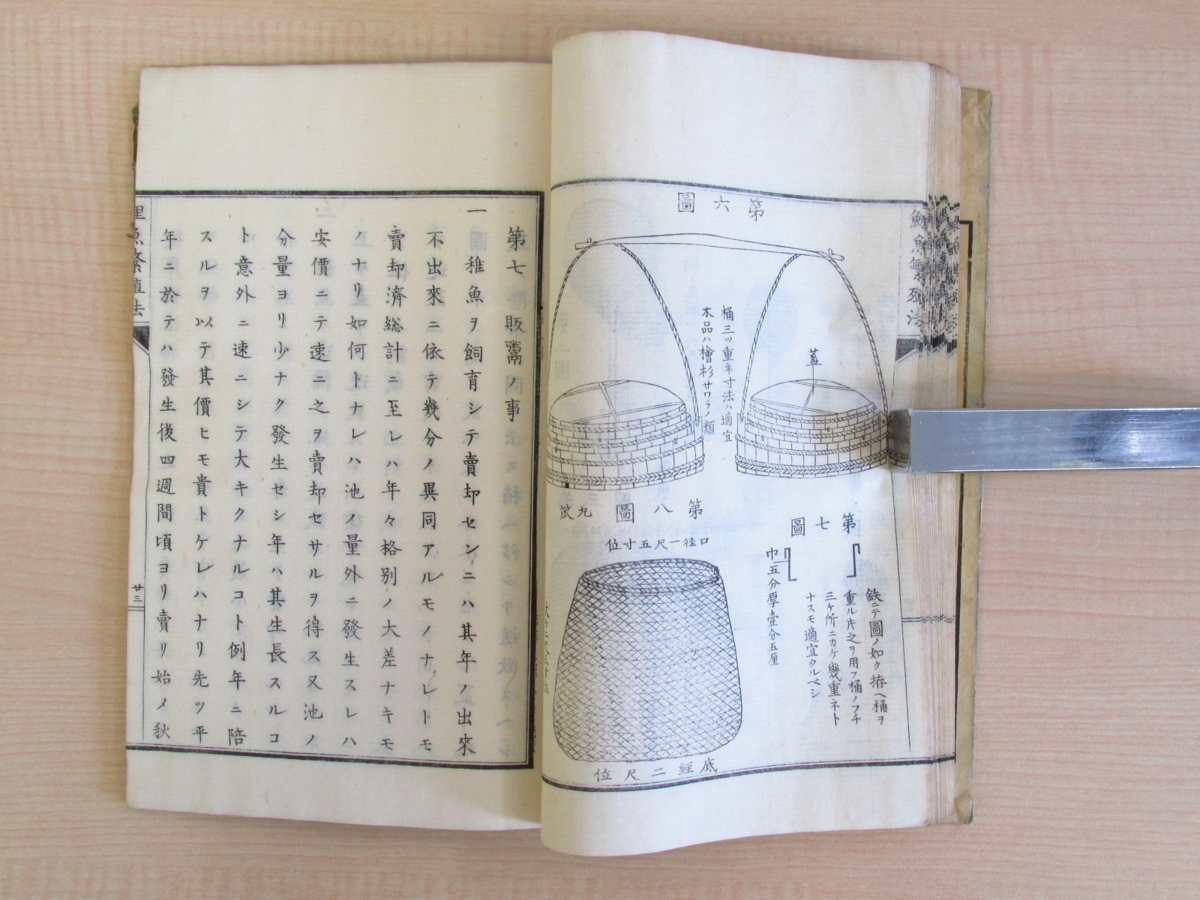 第六圖
蓋
桶三ッ重ネ寸法ハ適宜
木品ハ檜杉サワラノ類
第七圖
鉄ニテ圖ノ如ク拵ヘ桶ヲ
重ル片之ヲ用フ桶ノフチ
三ケ所ニカケ幾重ネト
ナスモ適宜タルベシ
巾五分厚壹分五厘
第八圖
口径一尺五寸位
底經二尺位
第七販鬻ノ事
一稚魚ヲ飼育シテ賣却センニハ其年ノ出來
不出來ニ依テ幾分ノ異同アルモノナレトモ
賣却濟総計ニ至レハ年々格別ノ大差ナキモ
ノナリ如何トナレハ池ノ量外ニ發生スレハ
安價ニテ速ニ之ヲ賣却セサルヲ得ス又池ノ
分量ヨリ少ナク發生セシ年ハ其生長スルコ
ト意外ニ速ニシテ大キクナルコト例年ニ陪
スルヲ以テ其價ヒモ貴トケレハナリ先ツ平
年ニ於テハ發生後四週間頃ヨリ賣リ始メ秋
魚繁殖法
廿三